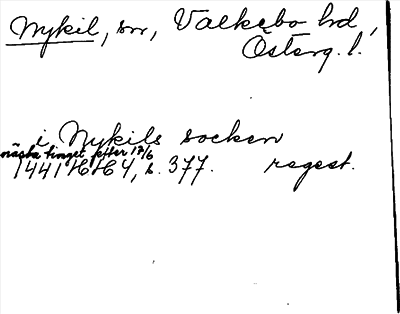 Nykil, sn, Valkebo hd,
Österg. l.
i Nykils socken
nästa tinget efter 17/6
1441 HH64, s. 377. regest.